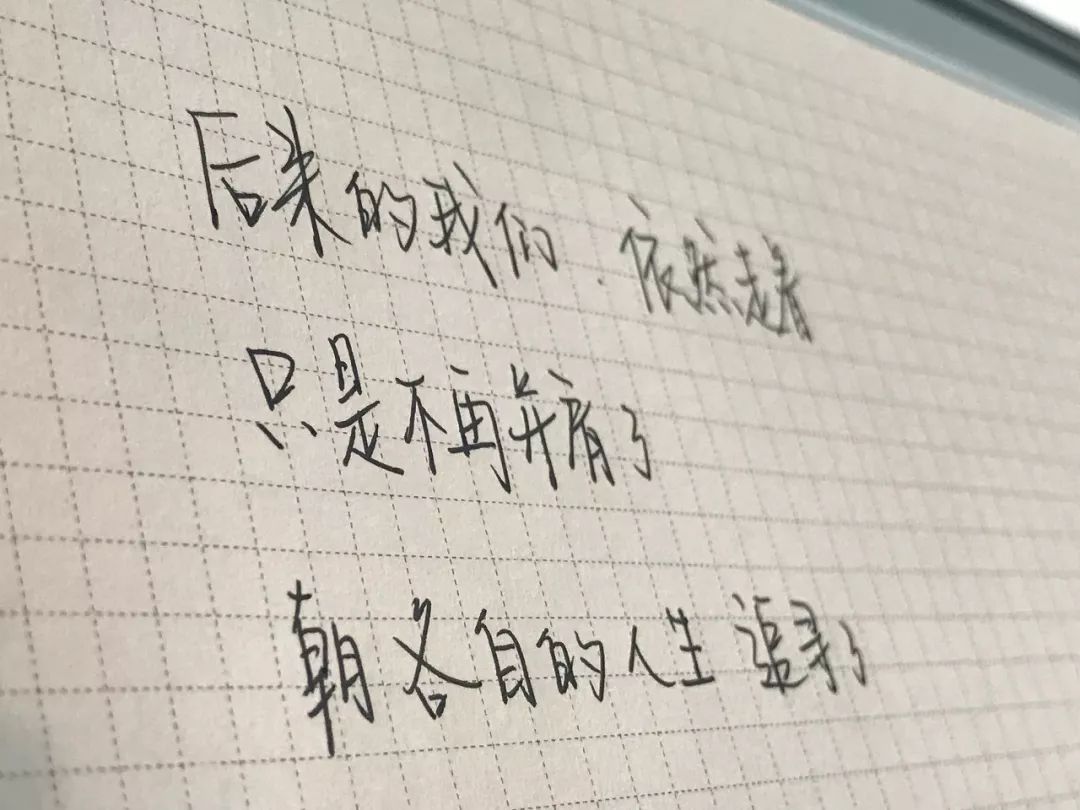 后来的我们 依然走着
只是不再并肩了
朝各自的人生追寻了